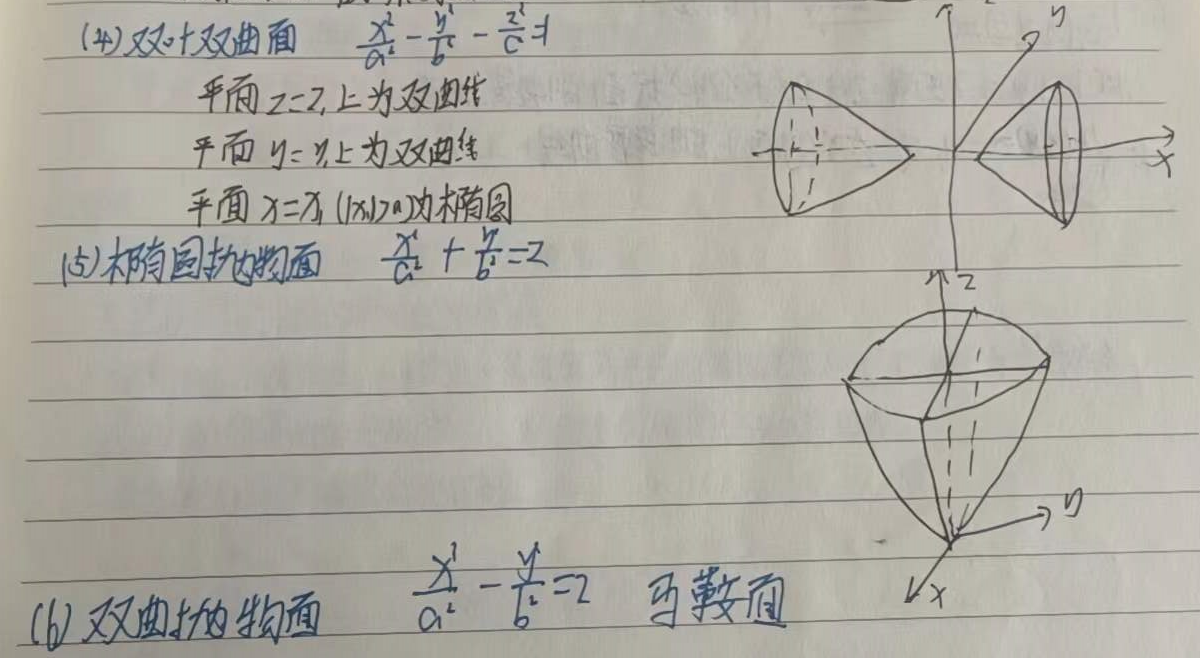 (4) 双叶双曲面 x²/a² - y²/b² - z²/c² = 1
平面 z=z₁上为双曲线
平面 y=y₁上为双曲线
平面 x=x₁ (|x₁|>a)为椭圆
(5) 椭圆抛物面 x²/a² + y²/b² = z
(6) 双曲抛物面 x²/a² - y²/b² = z 马鞍面
z
y
x
z
y
x